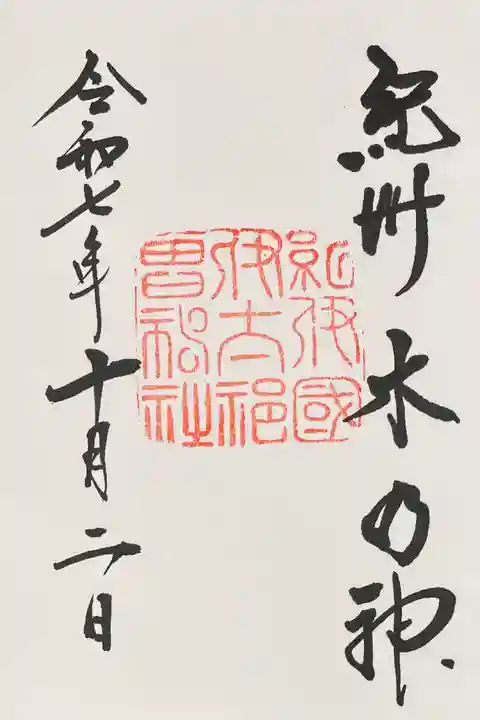 紀州 木の神
紀伊國
伊太祁
曽神社
令和七年十月二日